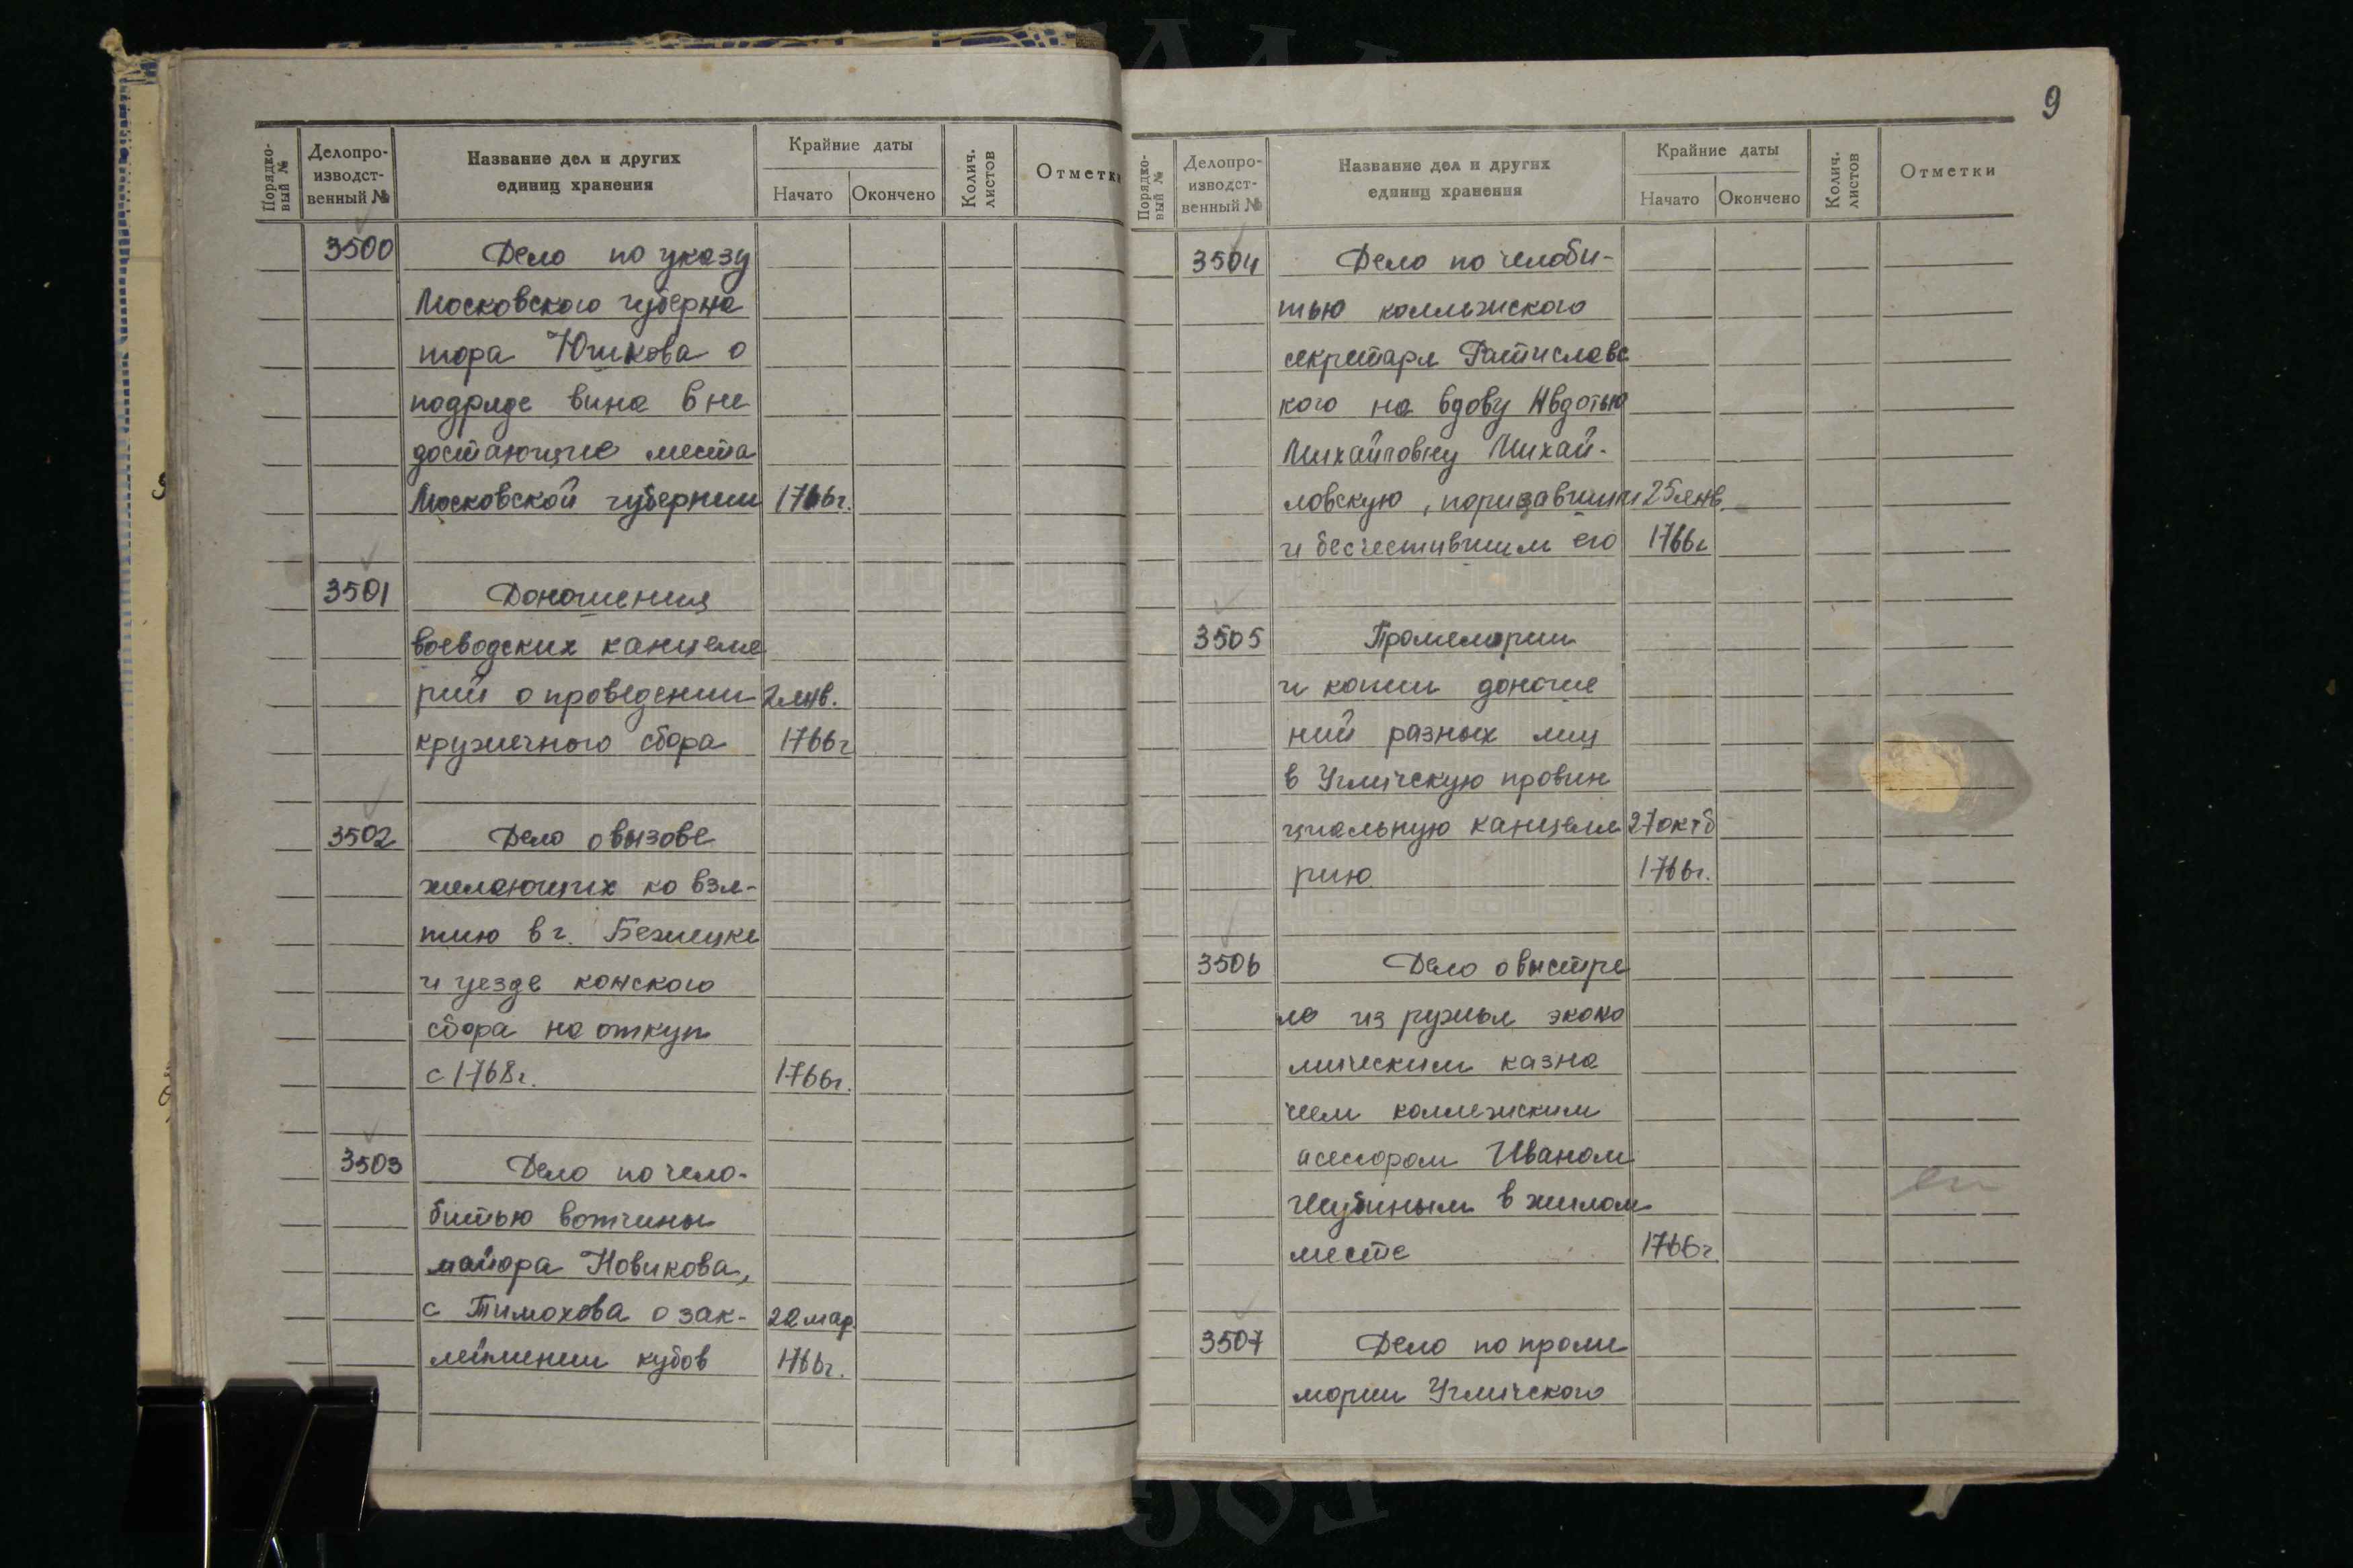 Порядко-
вый №
Делопро-
изводст-
венный №
Название дел и других
единиц хранения
Крайние даты
Начато
Окончено
Колич.
листов
Отметки
3500 Дело по указу
Московского губерна
тора Юшкова о
подряде вина в не
достающие места
Московской губернии 1766г.
3501 Доношения
воеводских канцеля
рий о проведении 2 янв.
кружечного сбора 1766г
3502 Дело о вызове
желающих ко взя-
тию в г. Бежецке
и уезде конского
сбора на откуп
с 1768г. 1766г.
3503 Дело по чело-
битью вотчины
майора Новикова,
с Тимохова о зак-
леймении кубов 1766г.
9
Порядко-
вый №
Делопро-
изводст-
венный №
Название дел и других
единиц хранения
Крайние даты
Начато
Окончено
Колич.
листов
Отметки
3504 Дело по челоби-
тью коллежского
секретаря Ратиславс
кого на вдову Авдотью
Михайловну Михай-
ловскую, 25 янв.
и бесчестившим его 1766г
3505 Промемории
и копии доноше
ний разных лиц
в Угличскую провин
циальную канцеля 27 октб
рию 1766г.
3506 Дело о выстре
ле из ружья эконо
мическим казна
чеем коллежским
асессором Иваном
в жилом
месте 1766г.
3507 Дело по проме
мории Угличского